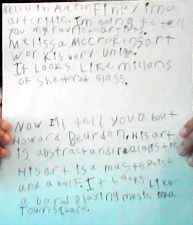 Hello Im Aaron Finley im a
art critic. Im going to tell
you my favorit artists.
Melissa McCrakens art
work is very Unice.
It Looks Like millons
of shattrd glass.
Now Ill tell you about
Howard Bearden. His art
is abstract and realistic
His art is a masterpiece
and a half. It Looks Like
a band playing music in a
Town square.